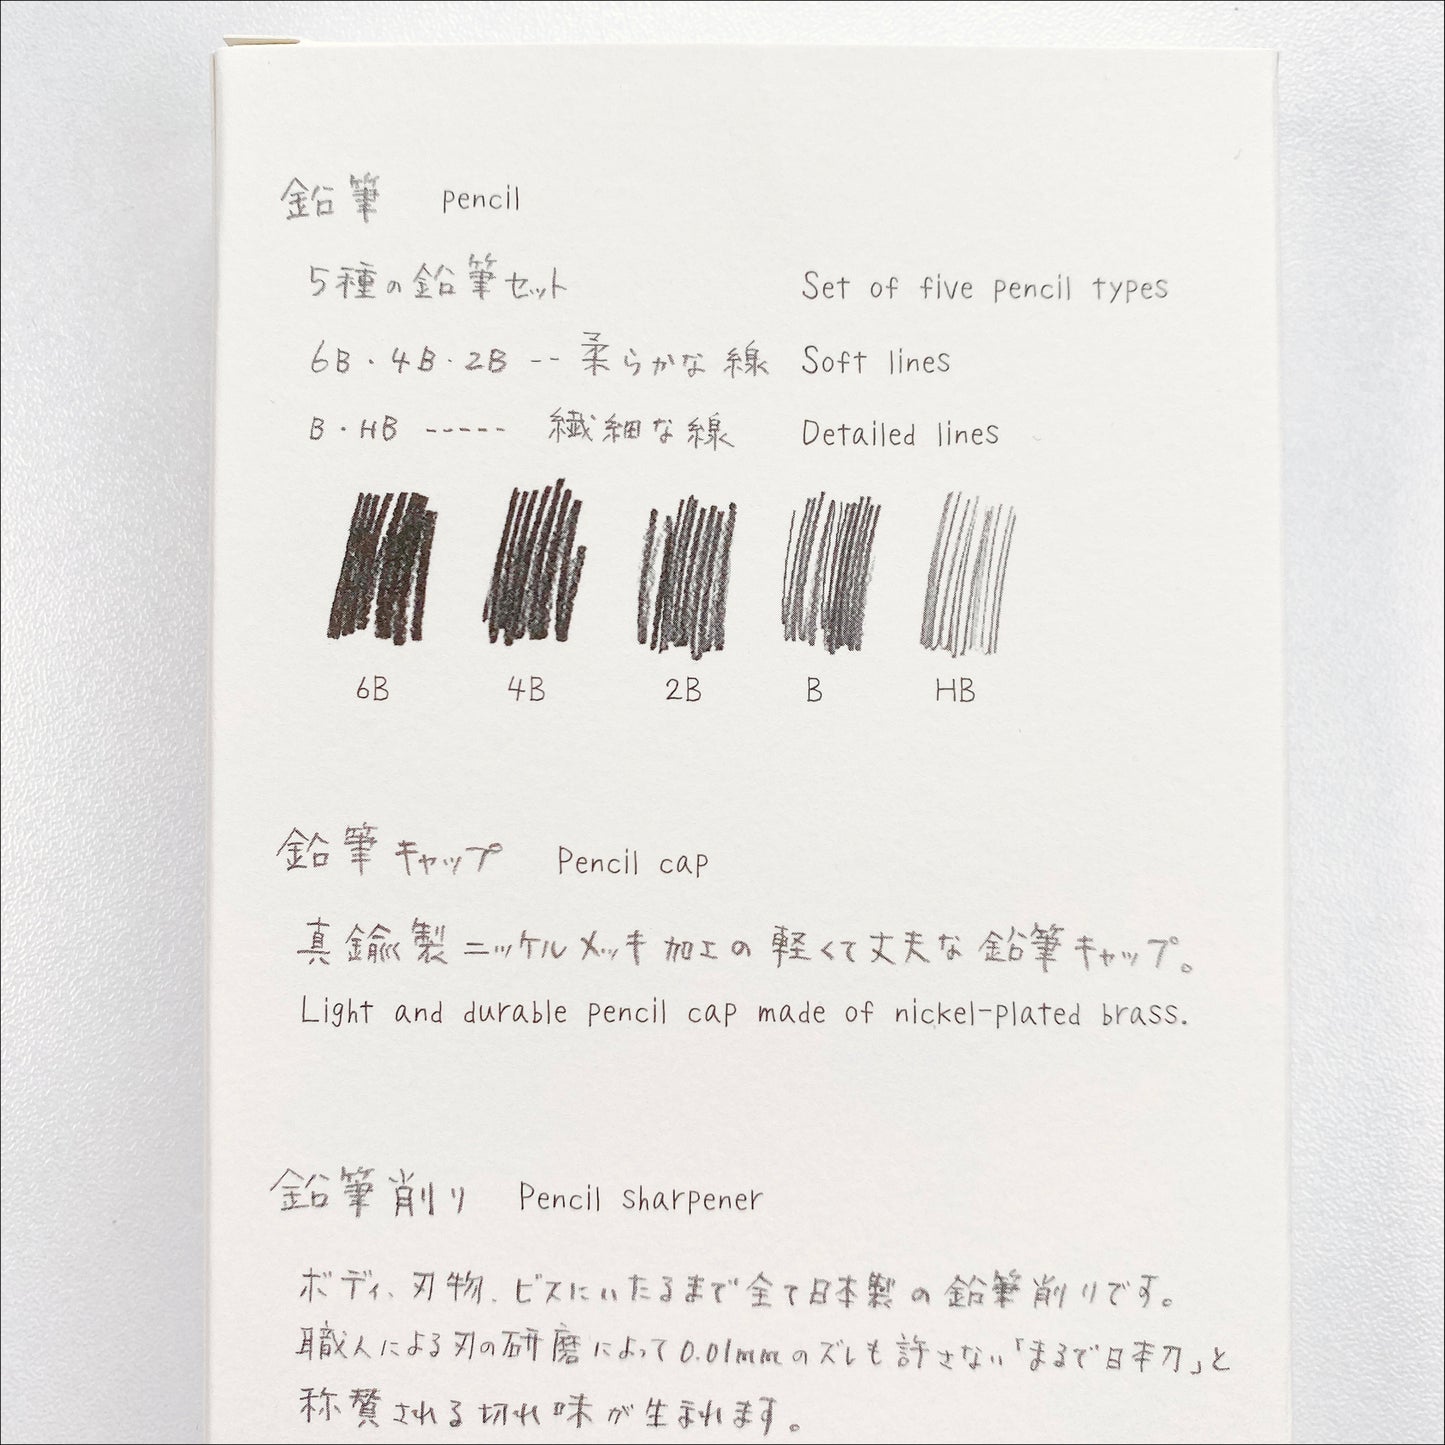 鉛筆 pencil
5種の鉛筆セット Set of five pencil types
6B・4B・2B -- 柔らかな線 Soft lines
B・HB ----- 繊細な線 Detailed lines
6B 4B 2B B HB
鉛筆キャップ Pencil cap
真鍮製ニッケルメッキ加工の軽くて丈夫な鉛筆キャップ。
Light and durable pencil cap made of nickel-plated brass.
鉛筆削り Pencil sharpener
ボディ、刃物、ビスにいたるまで全て日本製の鉛筆削りです。
職人による刃の研磨によって0.01mmのズレも許さない「まるで日本刀」と
称賛される切れ味が生まれます。